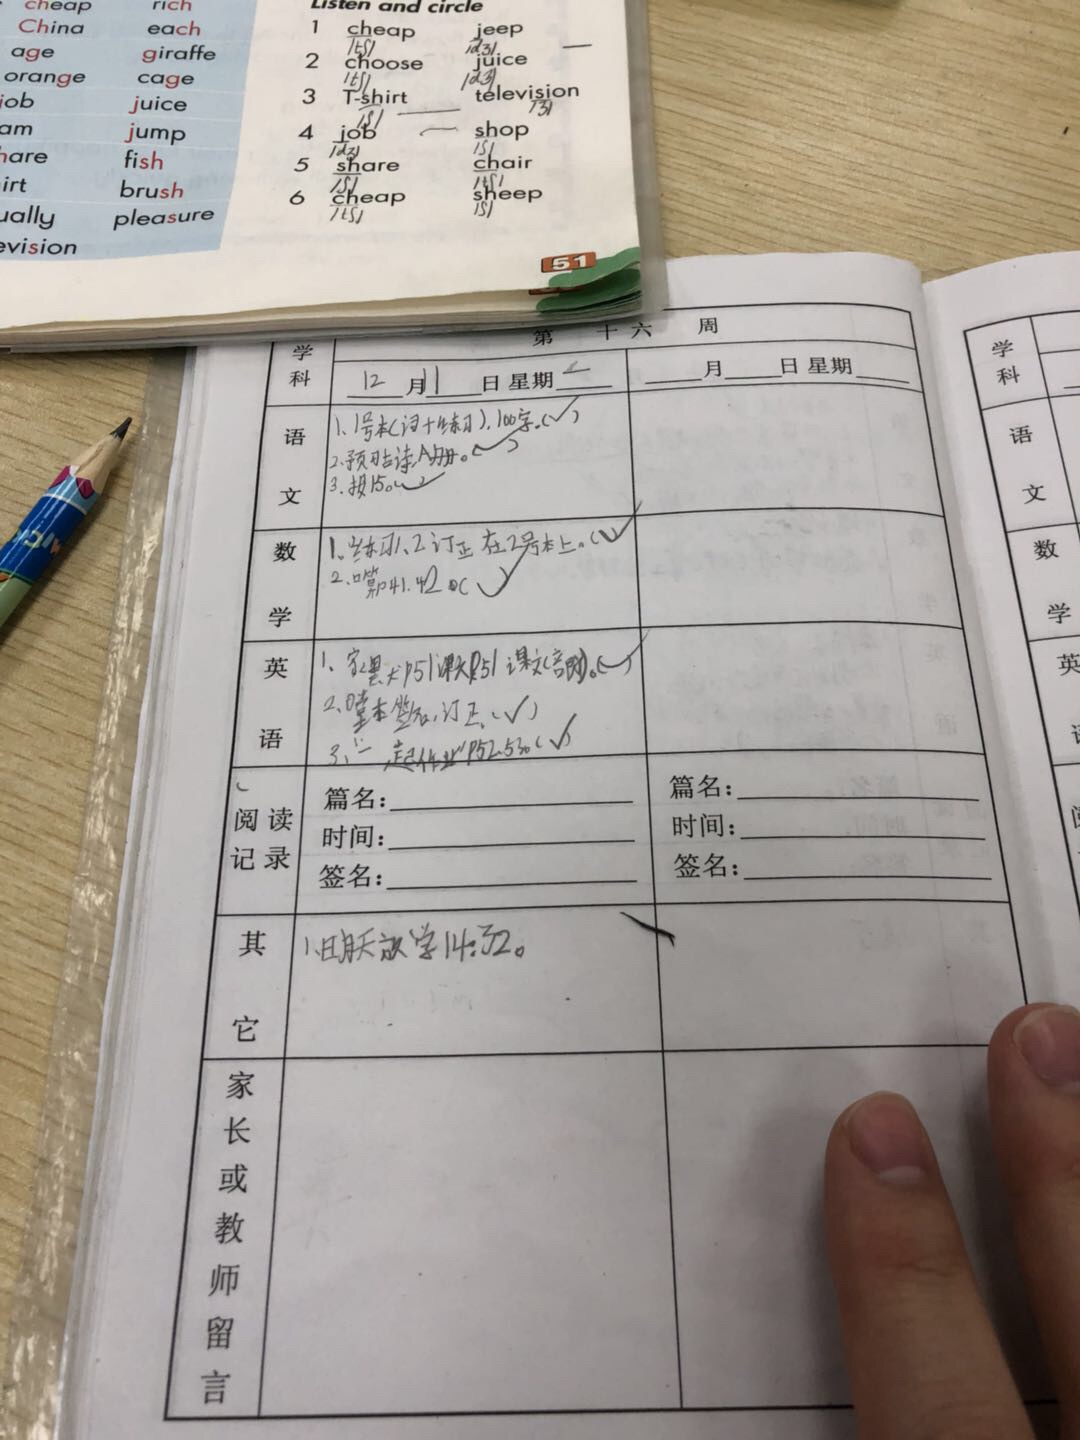 cheap rich
China each
age giraffe
orange cage
job juice
am jump
hare fish
irt brush
ually pleasure
evision
Listen and circle
1 cheap jeep
/tʃ/ /dʒ/
2 choose juice
/tʃ/ /dʒ/
3 T-shirt television
/ʃ/ /ʒ/
4 job shop
/dʒ/ /ʃ/
5 share chair
/ʃ/ /tʃ/
6 cheap sheep
/tʃ/ /ʃ/
51
学科 第 十六 周
12月11日 星期二 月 日 星期
语文
1、1号本(词+练习),100字。(✓)
2.预习古诗
3.报15。(✓)
数学
1、练习1、2订正在2号本上。(✓)
2、口算P41.42。(✓)
英语
1、P51 P51课文
2、堂本签名,订正。(✓)
3、"一起作业"P52.53。(✓)
阅读记录
篇名: 篇名:
时间: 时间:
签名: 签名:
其它
1、明天放学14:32。
家长或教师留言
学科
语文
数学
英